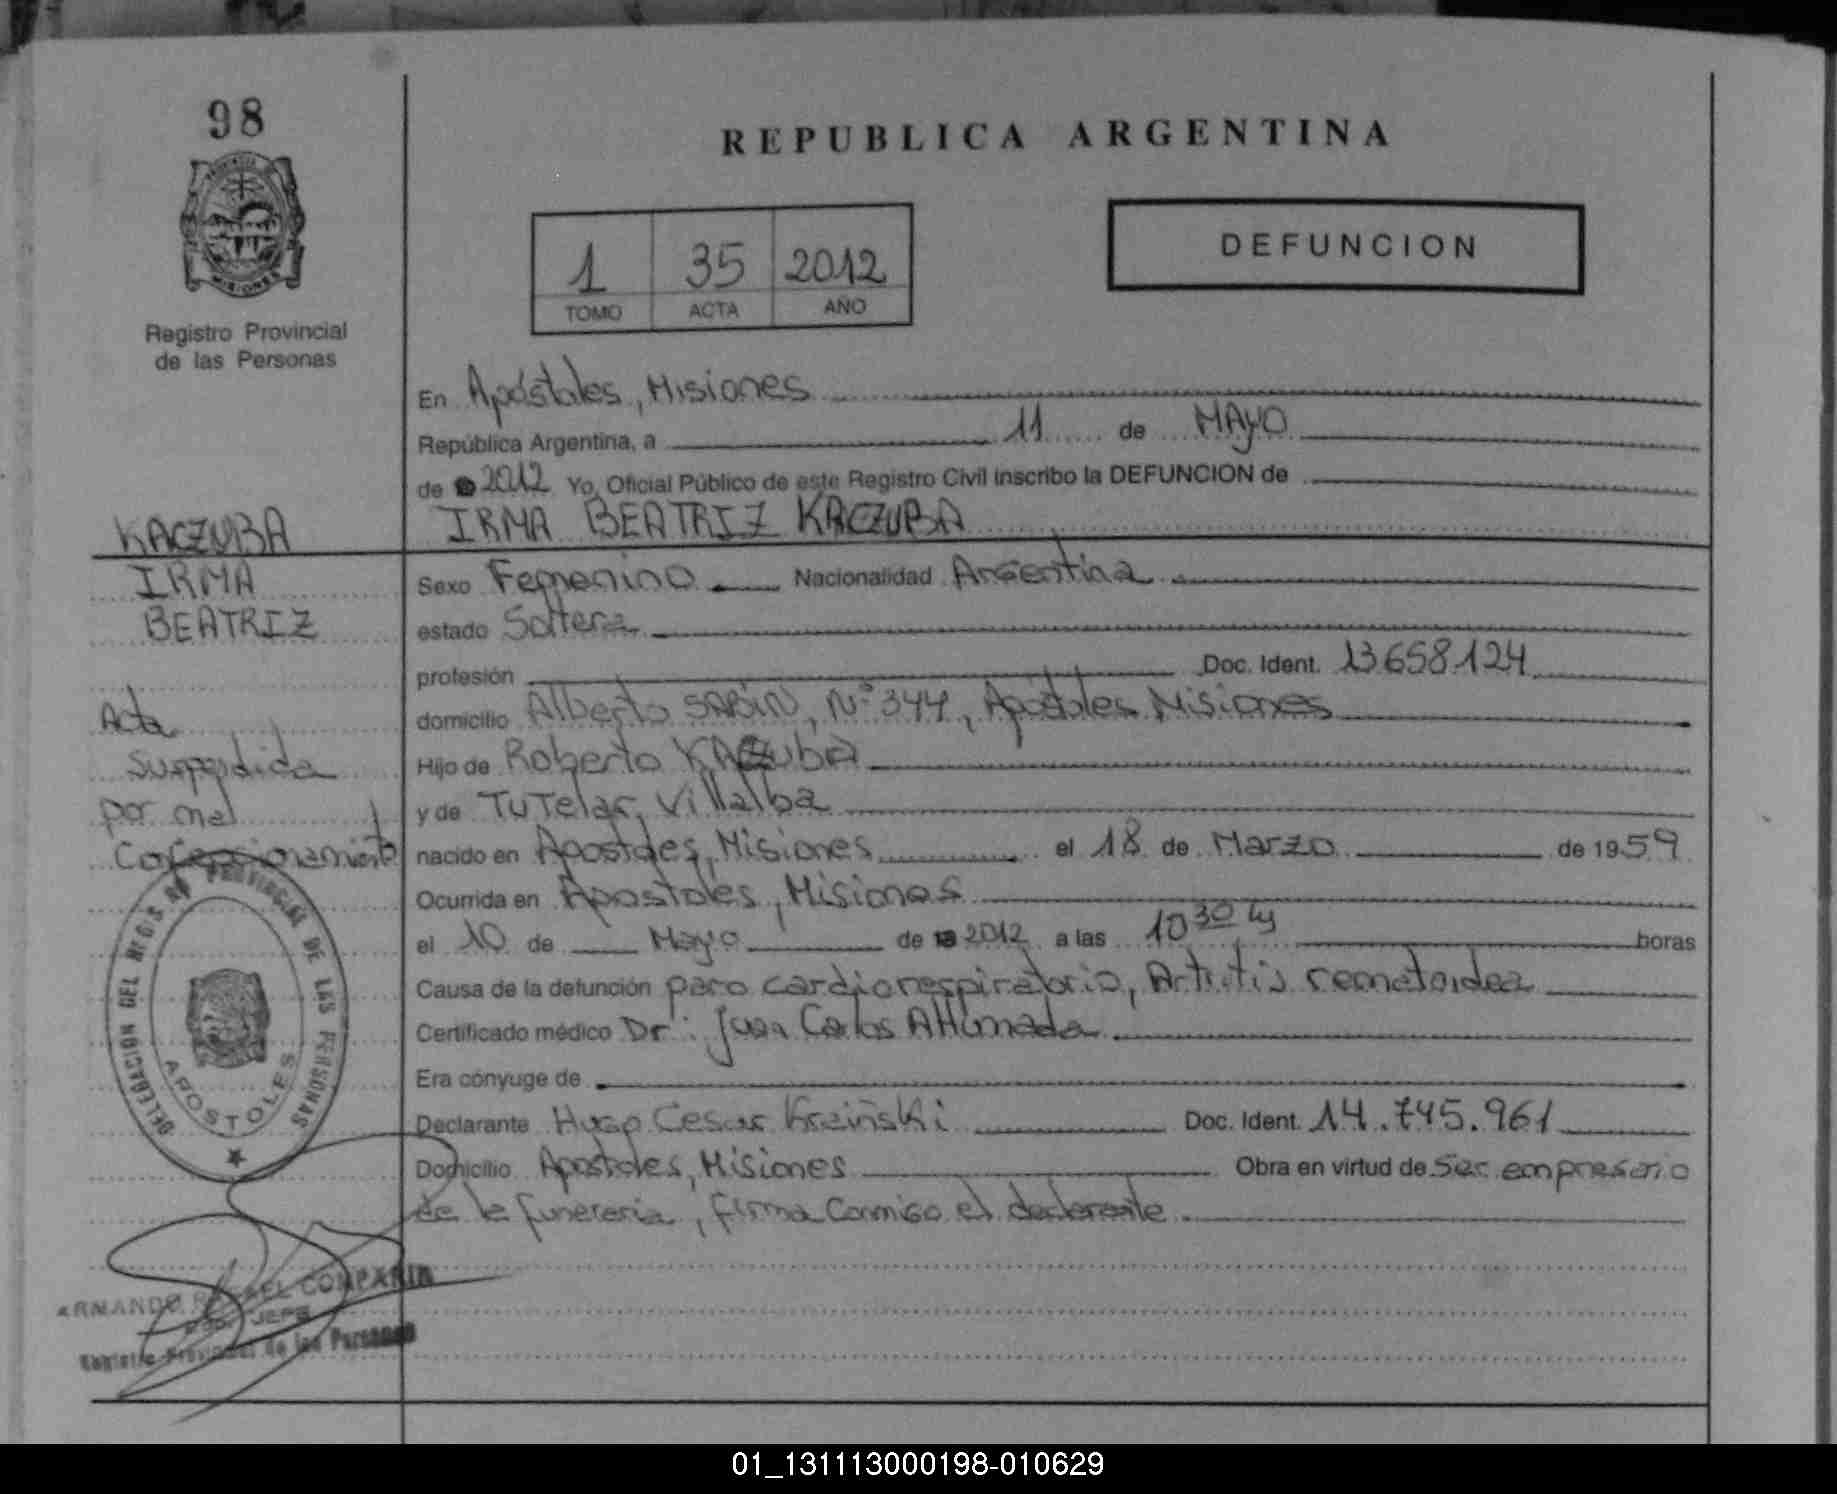 98
REPUBLICA ARGENTINA
PROVINCIA
MISIONES
1 35 2012
TOMO ACTA AÑO
DEFUNCION
Registro Provincial
de las Personas
En Apóstoles, Misiones
República Argentina, a 11 de MAYO
de 2012 Yo, Oficial Público de este Registro Civil inscribo la DEFUNCION de
KACZUBA
IRMA BEATRIZ KACZUBA
IRMA
BEATRIZ
Sexo Femenino Nacionalidad Argentina
estado Soltera
profesión Doc. Ident. 13.658.124
domicilio Alberto SABIN, N° 344, Apóstoles Misiones
Hijo de Roberto KACZubA
y de TuTelar, Villalba
nacido en Apostoles, Misiones el 18 de Marzo de 1959
Ocurrida en Apostoles, Misiones
el 10 de Mayo de 2012 a las 10 30 hs horas
Causa de la defunción paro cardiorespiratorio, Artritis rematoidea
Certificado médico Dr: Juan Carlos AHumada
Era cónyuge de
Declarante Hugo Cesar Krziñski Doc. Ident. 14.745.961
Domicilio Apostoles, Misiones Obra en virtud de Ser empresario
de la funereria, firma conmigo el declarante
Acta
Suspendida
por mal
Confeccionamiento
DELEGACION DEL REGISTRO PROVINCIAL DE LAS PERSONAS
APOSTOLES
ARMANDO COMPARIN
JEFE
Registro Provincial de las Personas
01_131113000198-010629